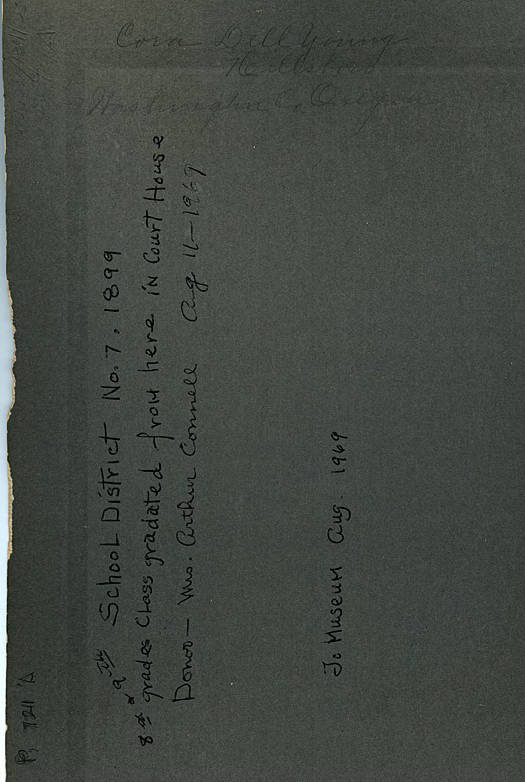 Cora Dell Young
Hillsboro
Washington Co, Oregon
School District No. 7, 1899
8th & 9th grades Class gradated from here in Court House
Donor — Mrs. Arthur Connell Aug 11 — 1969
To Museum Aug. 1969